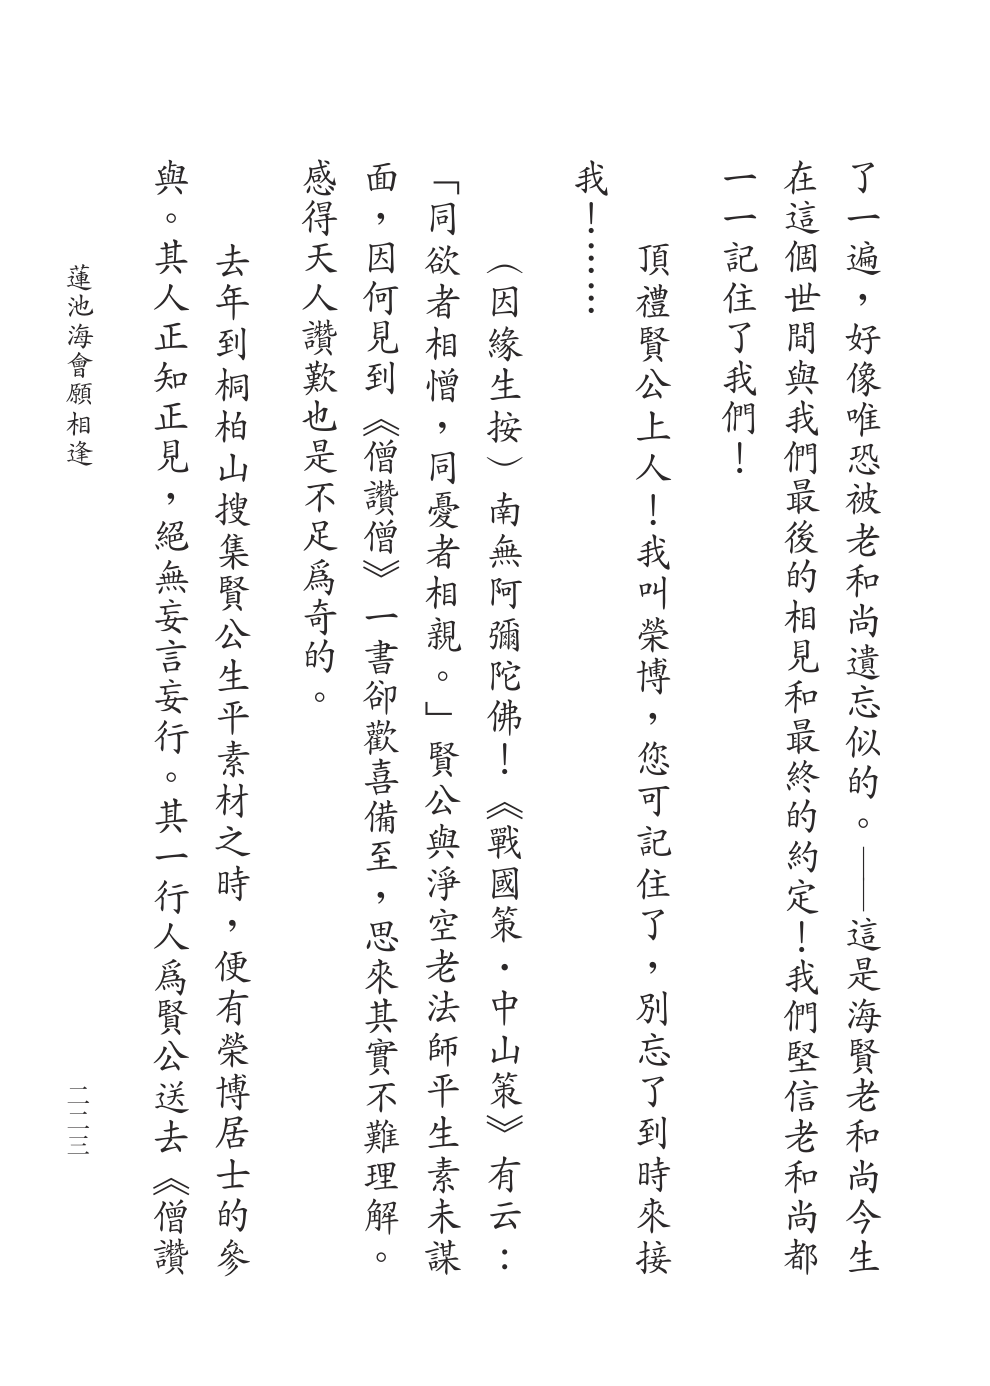 了一遍，好像唯恐被老和尚遺忘似的。——這是海賢老和尚今生
在這個世間與我們最後的相見和最終的約定！我們堅信老和尚都
一一記住了我們！
頂禮賢公上人！我叫榮博，您可記住了，別忘了到時來接
我！……
（因緣生按）南無阿彌陀佛！《戰國策·中山策》有云：
「同欲者相憎，同憂者相親。」賢公與淨空老法師平生素未謀
面，因何見到《僧讚僧》一書卻歡喜備至，思來其實不難理解。
感得天人讚歎也是不足爲奇的。
去年到桐柏山搜集賢公生平素材之時，便有榮博居士的參
與。其人正知正見，絕無妄言妄行。其一行人爲賢公送去《僧讚
蓮池海會願相逢
二二三